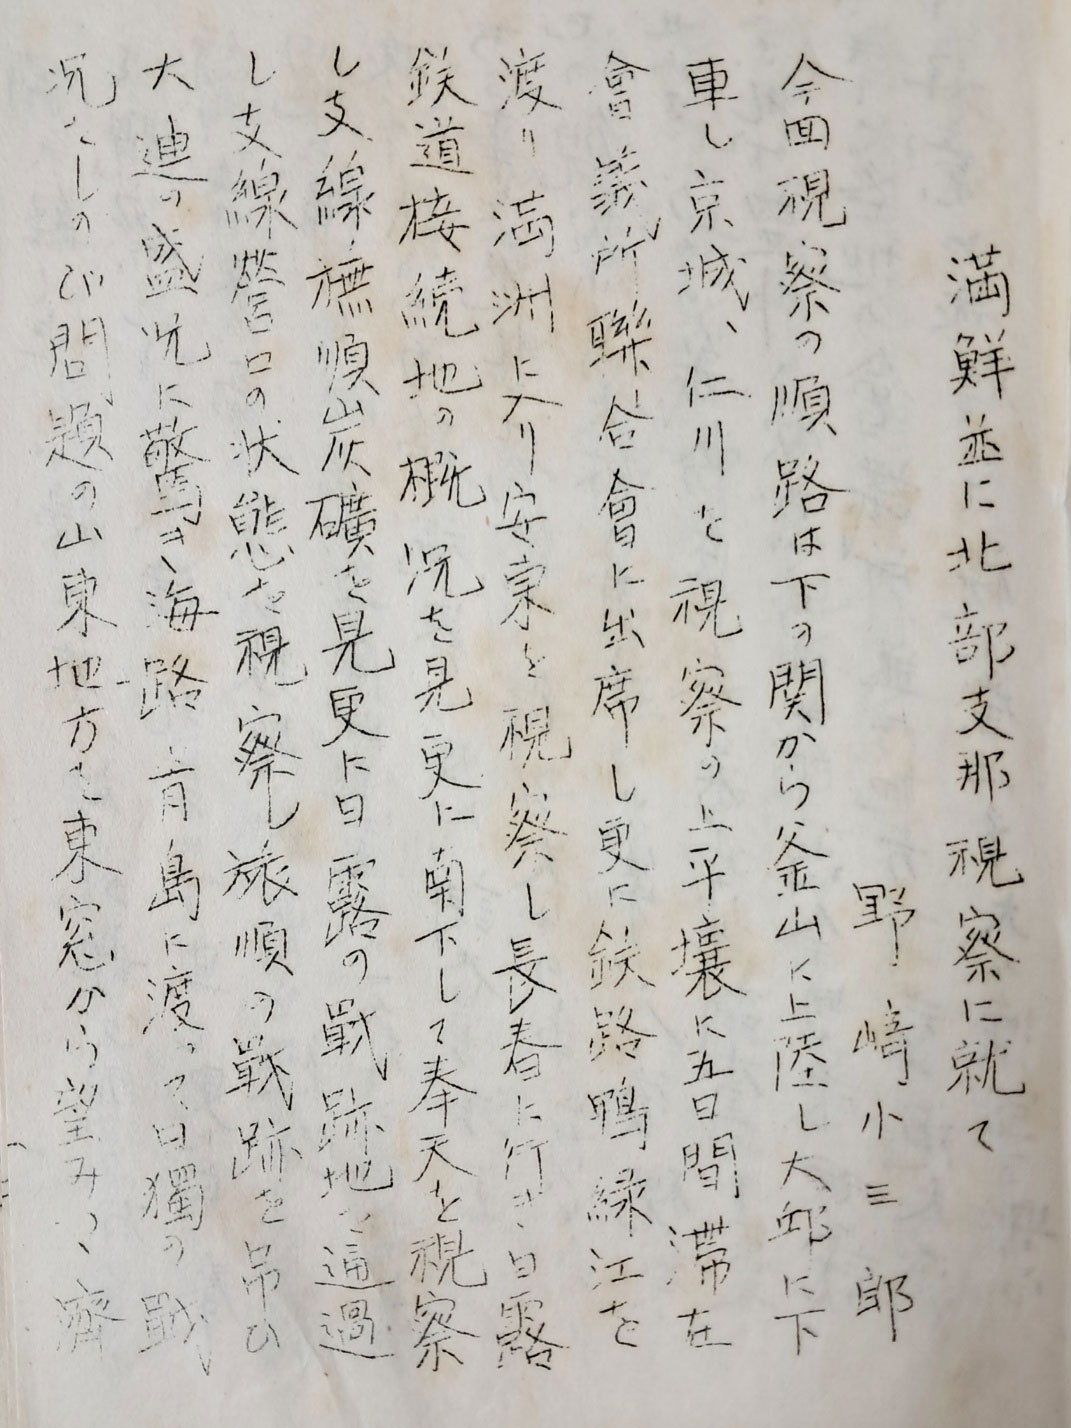 満鮮並に北部支那視察に就て
野﨑小三郎
今回視察の順路は下の関から釜山に上陸し大邱に下
車し京城、仁川を視察の上平壌に五日間滞在
會議所聯合會に出席し更に鉄路鴨緑江を
渡り満洲に入り安東を視察し長春に行き日露
鉄道接続地の概况を見更に南下して奉天を視察
し支線撫順炭礦を見更に日露の戰跡地を通過
し支線營口の状態を視察し旅順の戰跡を吊ひ
大連の盛况に驚き海路青島に渡って日獨の戰
况をしのび問題の山東地方を東窓から望みつゝ濟